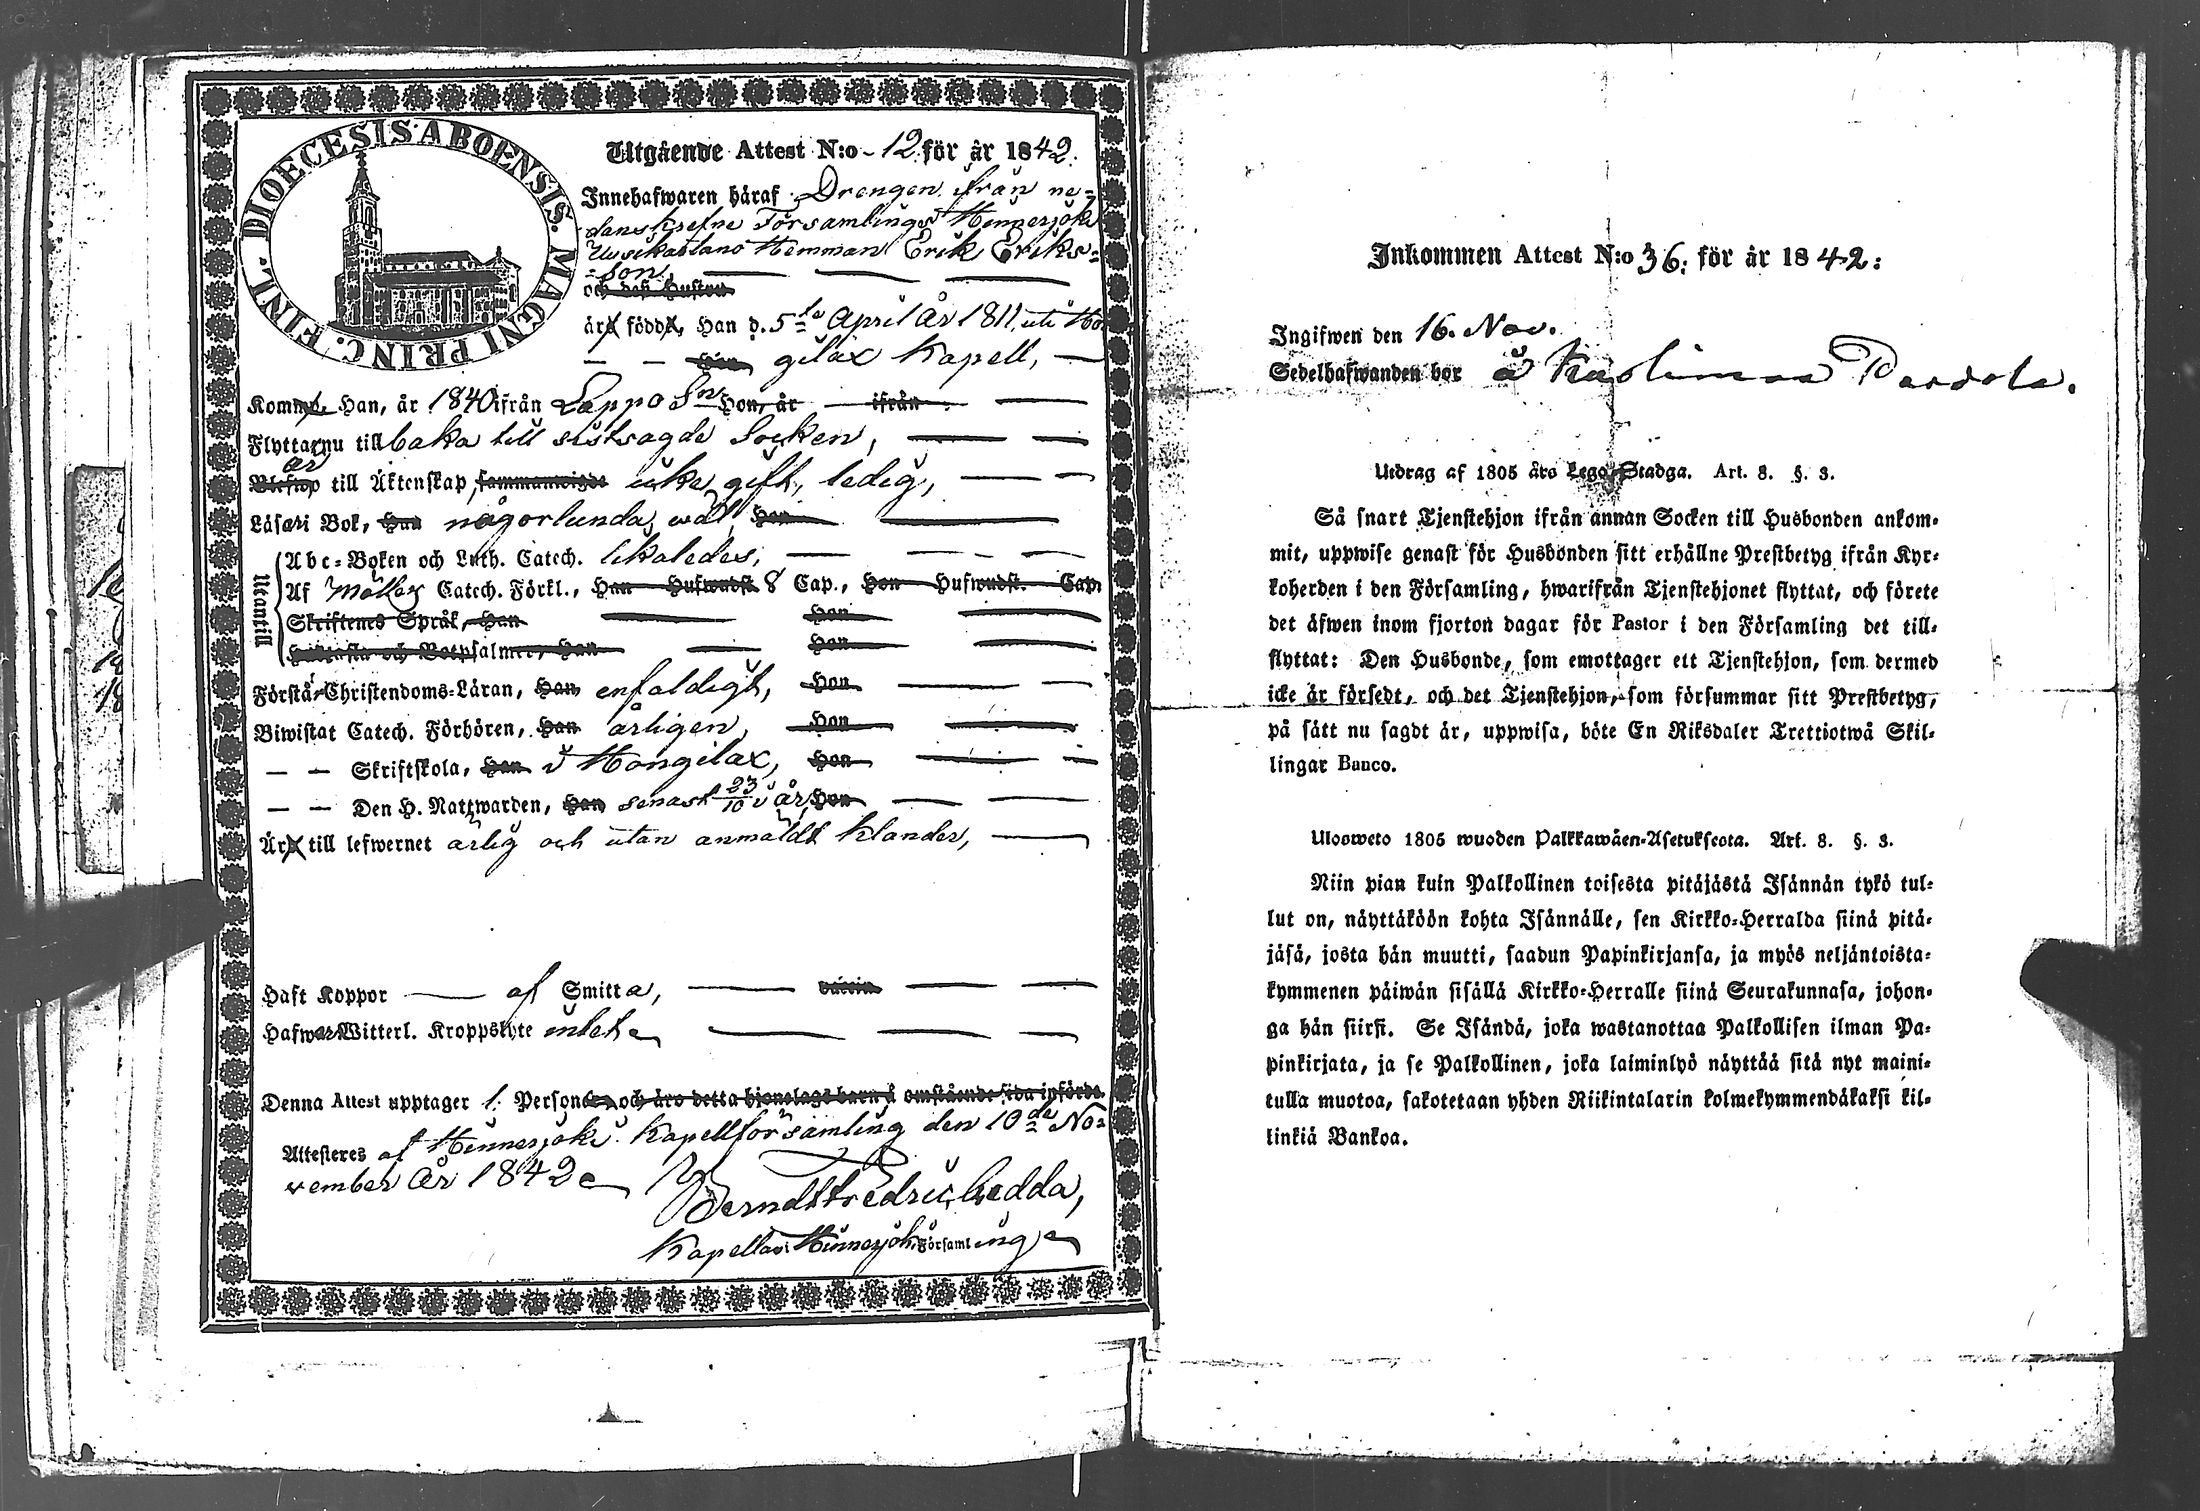 DIOECESIS ABOENSIS. MAGNI PRINC. FINL.
Utgående Attest N:o 12 för år 1842.
Innehafwaren häraf Drengen ifrån ne-
danskrefne Församlings Hinnerjoki
Hemman Erik Eriks-
son,
och deß Hustru
är född, Han d. 5te April År 1811, uti Ho-
Hon gilax Kapell,
Kom, Han, år 1840 ifrån Lappo Sn Hon, år ifrån
Flyttar nu till baka till sistsagde Socken,
är
till Äktenskap, sammanwigde icke gift, ledig,
Läser i Bok, Han någorlunda wäl, Hon
Utantill
Abc-Boken och Luth. Catech. likaledes,
Af Möllers Catech. Förkl., Han Hufwudst. 8 Cap., Hon Hufwudst. Cap.
Skriftenes Språk, Han Hon
och Botpsalmer, Han Hon
Förstår Christendoms-Läran, Han enfaldigt, Hon
Biwistat Catech. Förhören, Han årligen, Hon
— — Skriftskola, Han i Hongilax, Hon
— — Den H. Nattwarden, Han senast 23/10 i år, Hon
Är till lefwernet ärlig och utan anmäldt klander,
Haft Koppor af Smitta, vaccin
Hafwer Witterl. Kroppslyte intet
Denna Attest upptager 1. Person och äro detta hjonelags barn å omstående sida införde.
Attesteres af Hinnerjoki Kapellförsamling den 10de No-
vember År 1842
Berndt Fredric Gadda,
Kapellan i Hinnerjoki Församling
Inkommen Attest N:o 36: för år 1842:
Ingifwen den 16. Nov.
Sedelhafwanden bor å
Utdrag af 1805 års Lego-Stadga. Art. 8. §. 3.
Så snart Tjenstehjon ifrån annan Socken till Husbonden ankom-
mit, uppwise genast för Husbonden sitt erhållne Prestbetyg ifrån Kyr-
koherden i den Församling, hwarifrån Tjenstehjonet flyttat, och förete
det äfwen inom fjorton dagar för Pastor i den Församling det till-
flyttat: Den Husbonde, som emottager ett Tjenstehjon, som dermed
icke är försedt, och det Tjenstehjon, som försummar sitt Prestbetyg,
på sätt nu sagdt är, uppwisa, böte En Riksdaler Trettiotwå Skil-
lingar Banco.
Ulosweto 1805 wuoden Palkkawäen-Asetuksesta. Art. 8. §. 3.
Niin pian kuin Palkollinen toisesta pitäjästä Isännän tykö tul-
lut on, näyttäköön kohta Isännälle, sen Kirkko-Herralda siinä pitä-
jäsä, josta hän muutti, saadun Papinkirjansa, ja myös neljäntoista-
kymmenen päiwän sisällä Kirkko-Herralle siinä Seurakunnasa, johon-
ga hän siirsi. Se Isändä, joka wastanottaa Palkollisen ilman Pa-
pinkirjata, ja se Palkollinen, joka laiminlyö näyttää sitä nyt maini-
tulla muotoa, sakotetaan yhden Riikintalarin kolmekymmendäkaksi kil-
linkiä Bankoa.